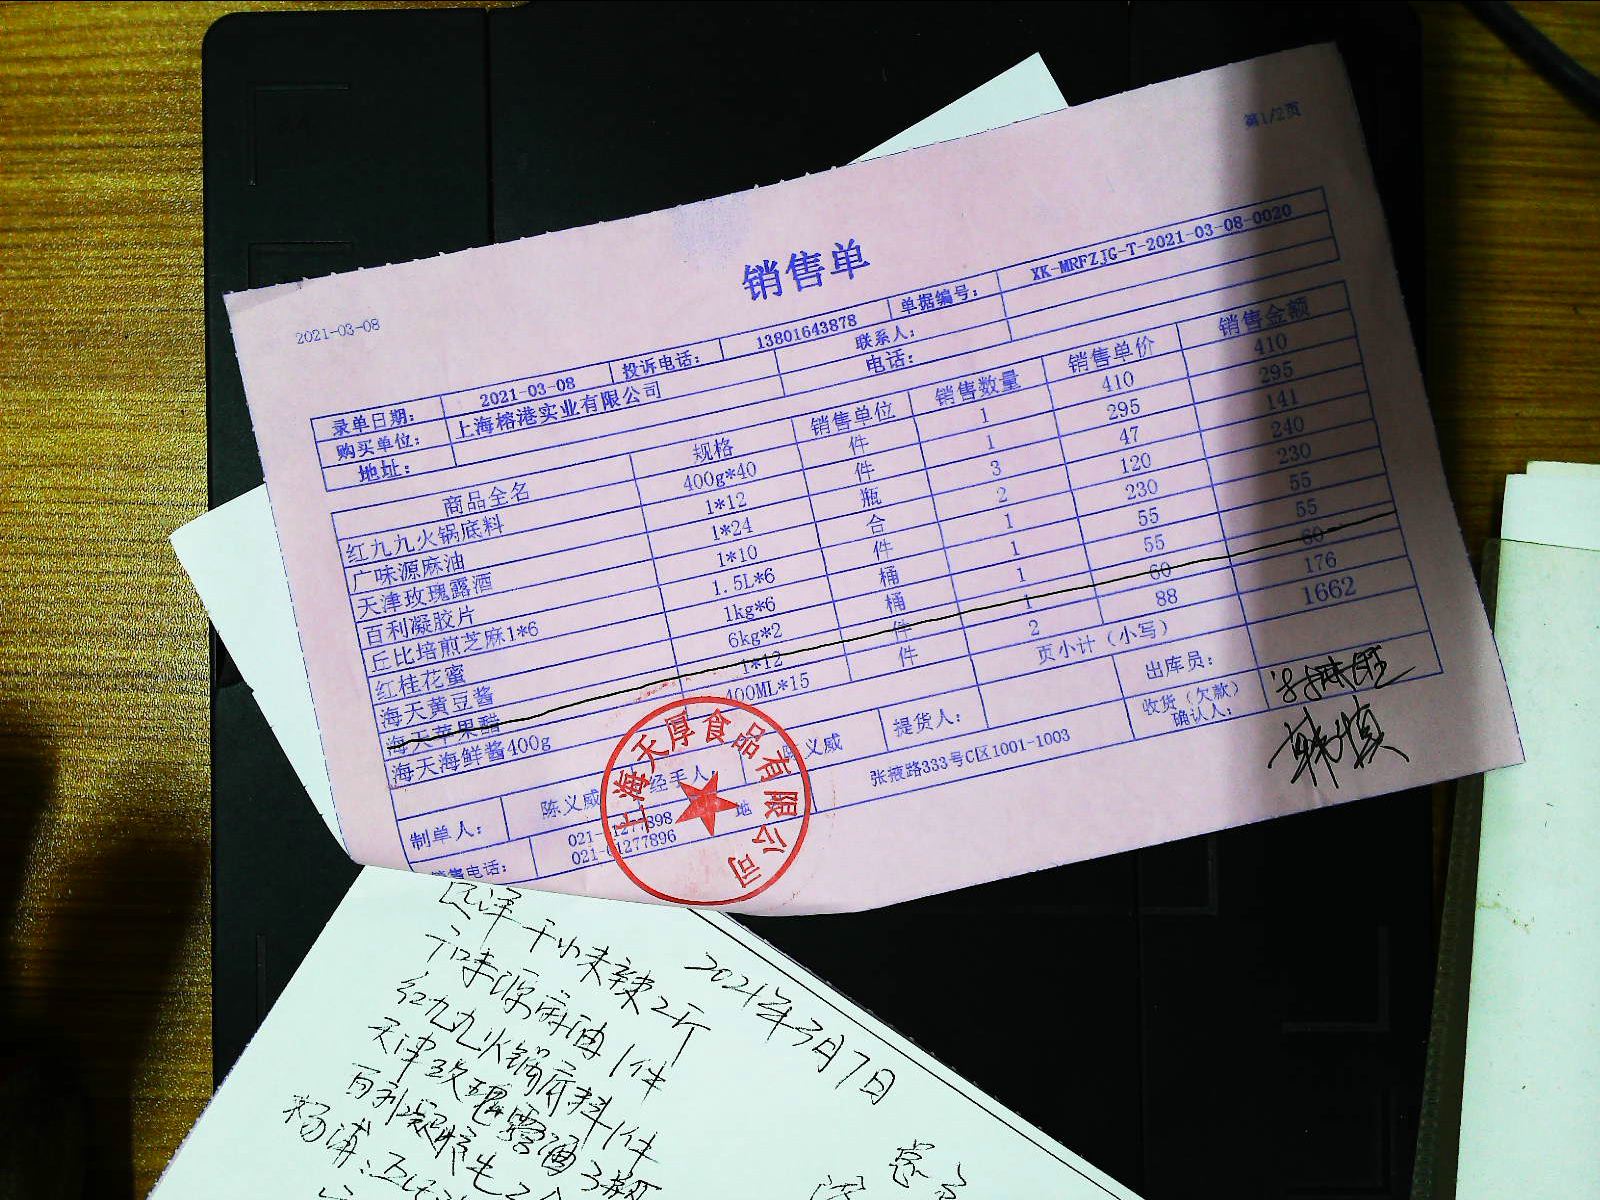 第1/2页
销售单
2021-03-08
录单日期: 2021-03-08 投诉电话: 13801643878 单据编号: XK-MRFZJG-T-2021-03-08-0020
购买单位: 上海榕港实业有限公司 联系人:
地址: 电话:
商品全名 规格 销售单位 销售数量 销售单价 销售金额
红九九火锅底料 400g*40 件 1 410 410
广味源麻油 1*12 件 1 295 295
天津玫瑰露酒 1*24 瓶 3 47 141
百利凝胶片 1*10 合 2 120 240
丘比培煎芝麻1*6 1.5L*6 件 1 230 230
红桂花蜜 1kg*6 桶 1 55 55
海天黄豆酱 6kg*2 桶 1 55 55
海天苹果醋 1*12 件 1 60 60
海天海鲜酱400g 400ML*15 件 2 88 176
页小计（小写） 1662
制单人: 陈义威 经手人 陈义威 提货人: 出库员:
收货（欠款）确认人:
销售电话: 021-61277898 地 张掖路333号C区1001-1003
021-61277896
上海天厚食品有限公司
2021年3月7日
干小米辣2斤
广味源麻油1件
红九九火锅底料1件
天津玫瑰露酒3瓶
百利凝胶片2合
杨浦: